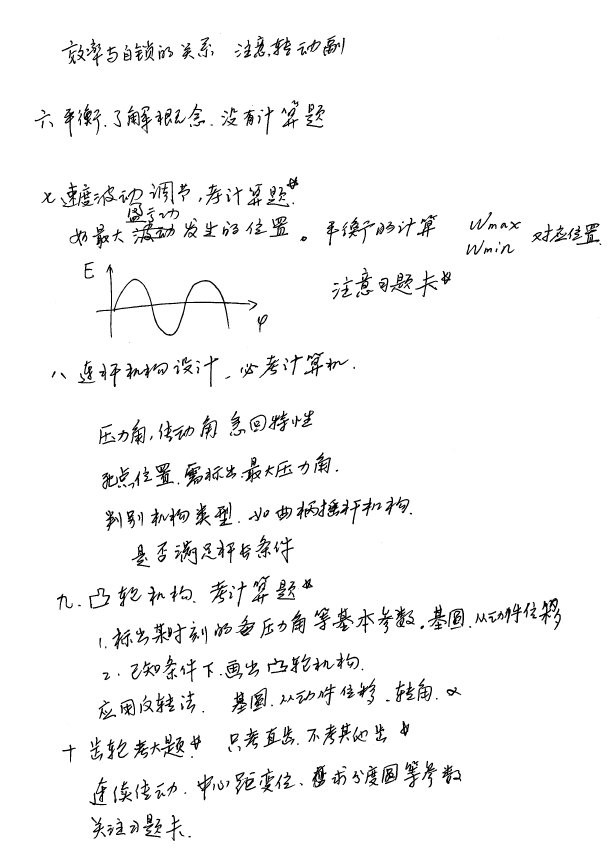 效率与自锁的关系 注意转动副
六 平衡.了解概念.没有计算题
七 速度波动调节,考计算题*.
盈亏功
如最大波动发生的位置。平衡的计算 Wmax
Wmin 对应位置.
E
注意习题卡*
φ
八 连杆机构设计、必考计算机.
压力角,传动角 急回特性
死点位置.需标出最大压力角.
判别机构类型.如曲柄摇杆机构.
是否满足杆长条件
九.凸轮机构.考计算题*
1.标出某时刻的压力角等基本参数。基圆.从动件位移
2.已知条件下.画出凸轮机构.
应用反转法. 基圆.从动件位移.转角.α
十 齿轮考大题* 只考直齿.不考其他齿*
连续传动.中心距变位、求分度圆等参数
关注习题卡.